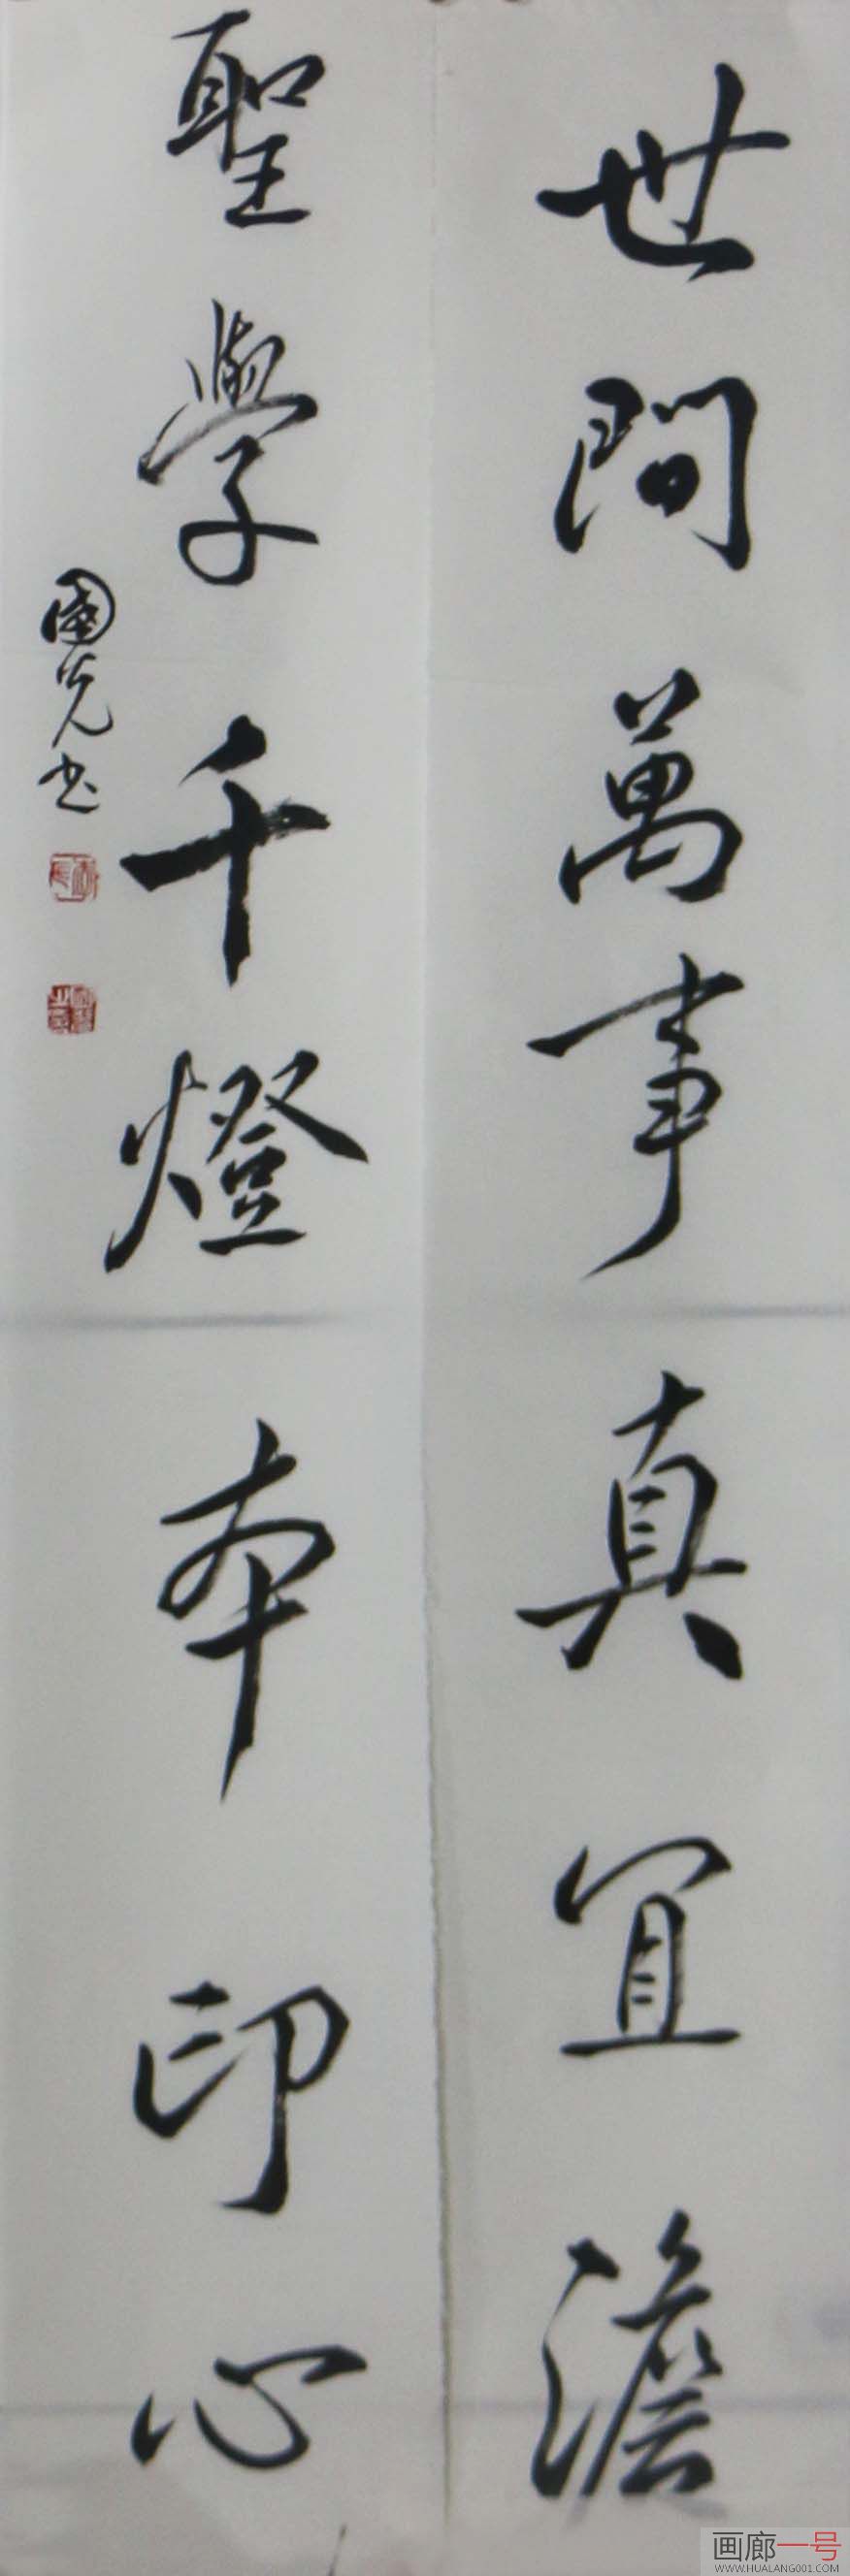 世間萬事真宜澹
聖學千燈本印心
國光书
画廊一号
WWW.HUALANG001.COM